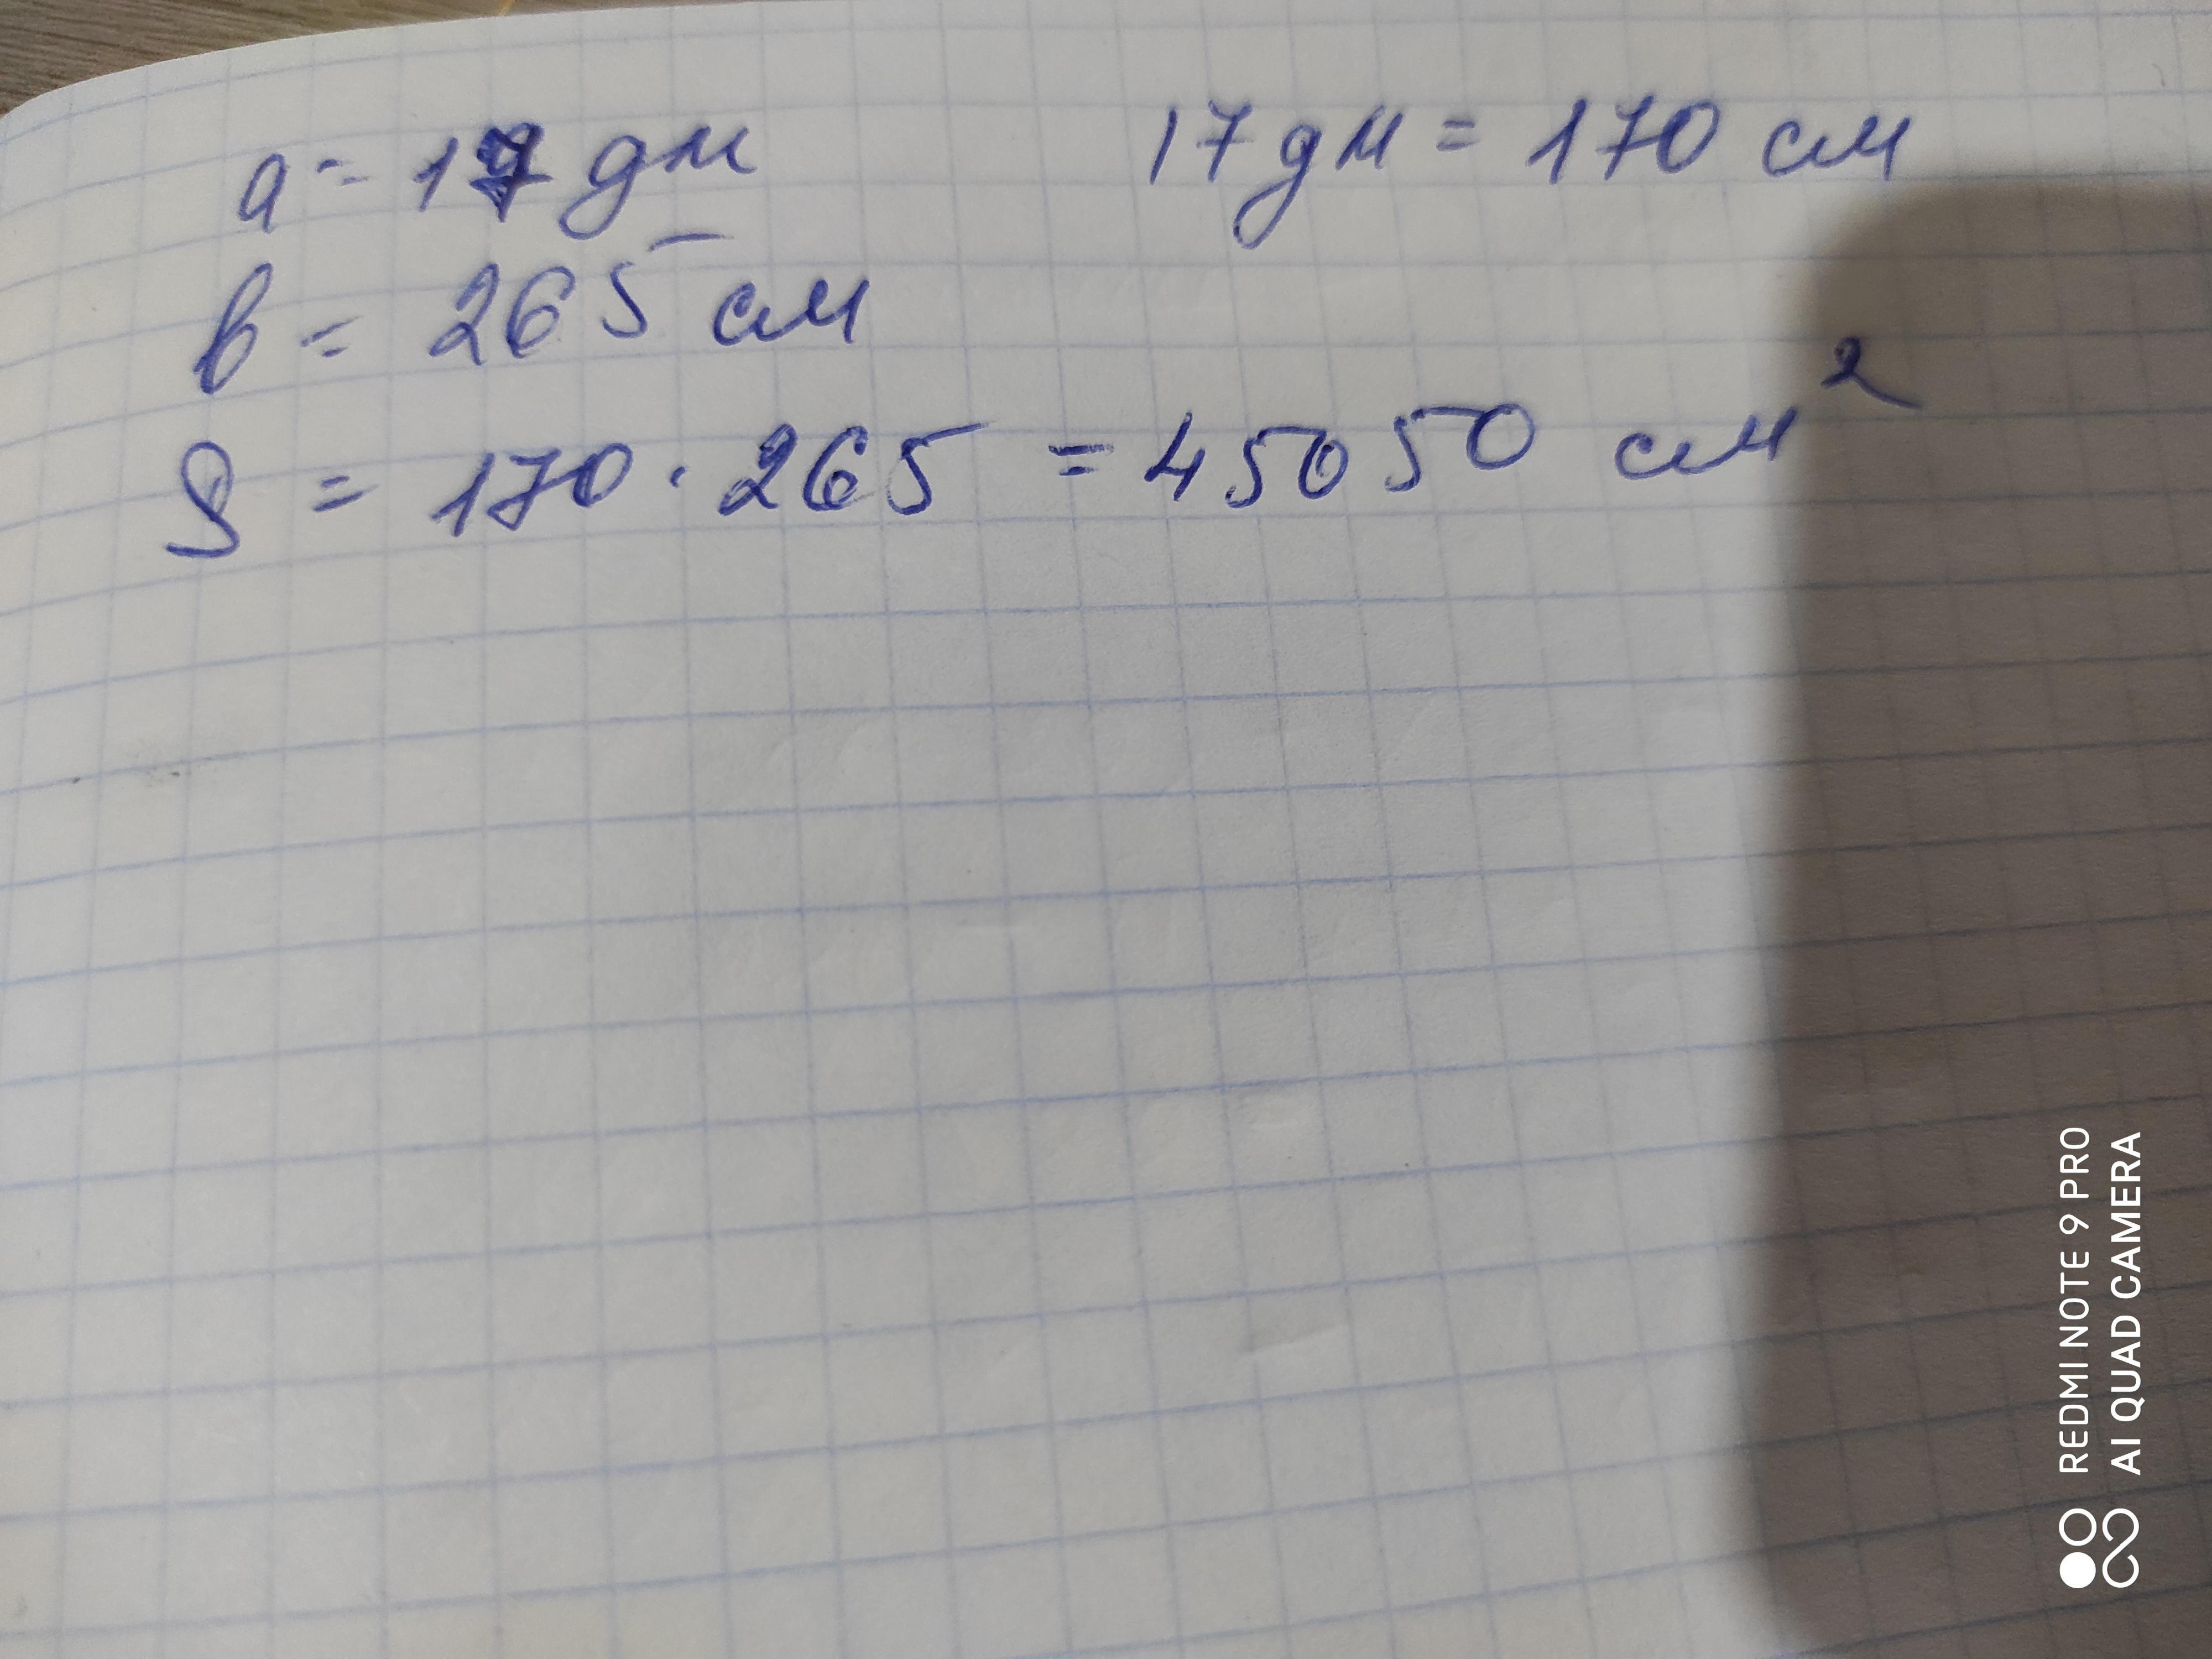 a = 17 дм 17 дм = 170 см
b = 265 см
S = 170 · 265 = 45050 см²
REDMI NOTE 9 PRO
AI QUAD CAMERA